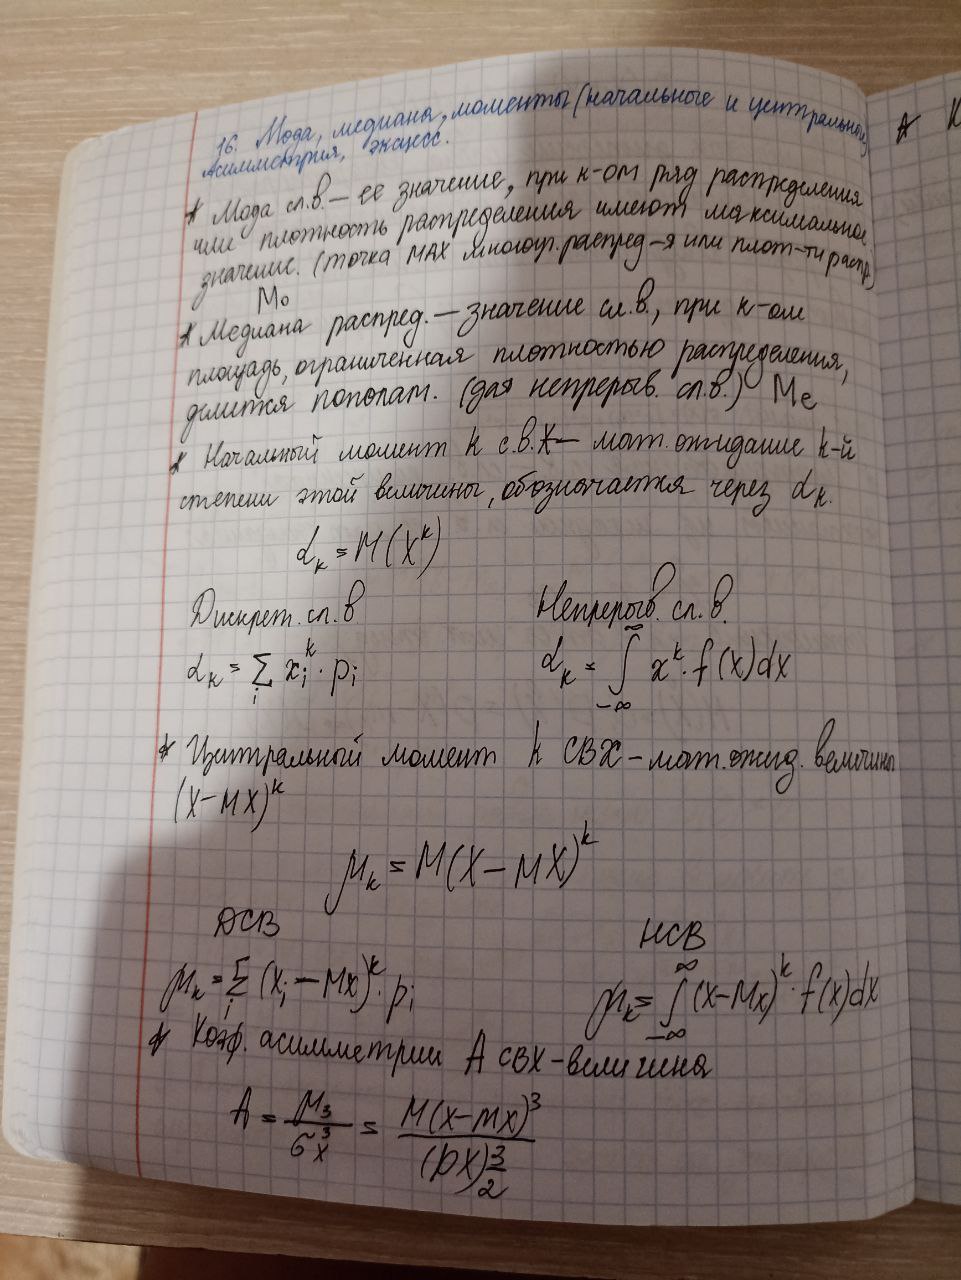 16. Мода, медиана, моменты (начальные и центральные)
асимметрия, эксцесс.
* Мода сл.в. – ее значение, при к-ом ряд распределения
или плотность распределения имеют максимальное
значение. (точка MAX многоуг. распред-я или плот-ти распр)
Mo
* Медиана распред. – значение сл.в., при к-ом
площадь, ограниченная плотностью распределения,
делится пополам. (для непрерыв. сл.в.) Me
* Начальный момент k с.в.X – мат. ожидание k-й
степени этой величины, обозначается через αk.
αk = M(X^k)
Дискрет. сл. в Непрерыв. сл. в.
αk = ∑i xi^k · pi αk = ∫-∞^∞ x^k · f(x)dx
* Центральный момент k СВХ – мат. ожид. величины
(X–MX)^k
μk = M(X – MX)^k
ДСВ НСВ
μk = ∑i (xi – Mx)^k · pi μk = ∫-∞^∞ (x–Mx)^k · f(x)dx
* Коэф. асимметрии A СВХ – величина
A = μ3/σx^3 = M(x–mx)^3/(DX)^3/2
A